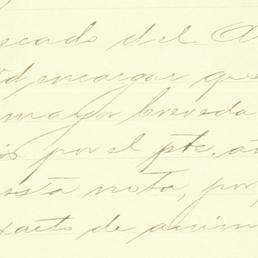 scado del A
d encargar que
mayor breveda
is por el pte. añ
esta nota, por
xacto de anim